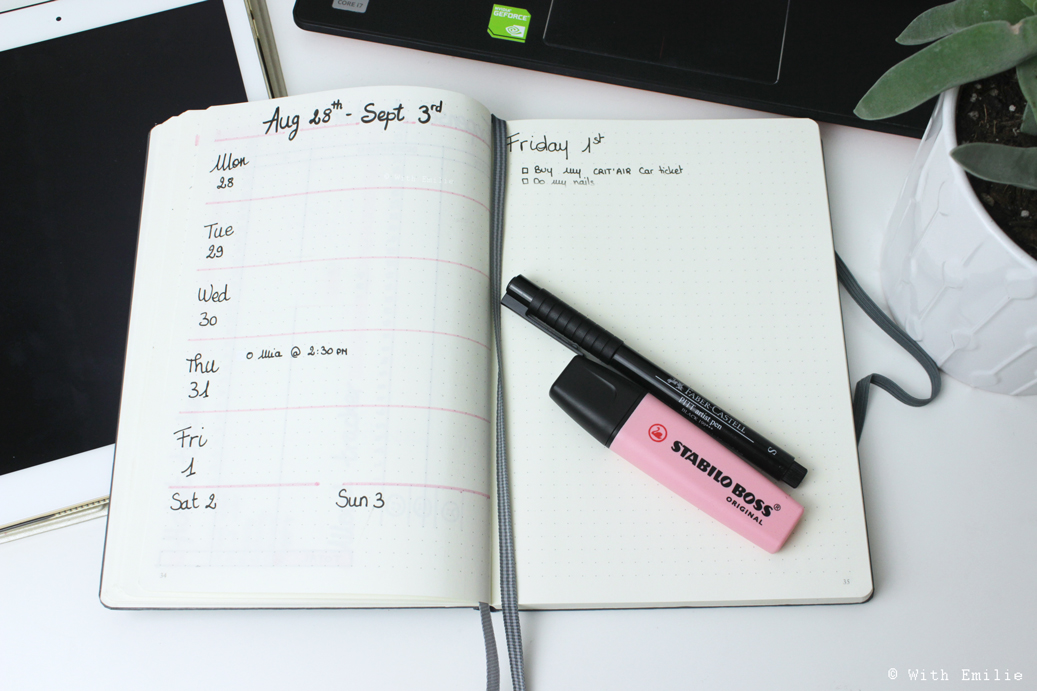 CORE i7
GEFORCE
Aug 28th - Sept 3rd
Mon
28
Tue
29
Wed
30
Thu
31
o Mia @ 2:30 PM
Fri
1
Sat 2
Sun 3
Friday 1st
□ Buy my CRIT'AIR Car ticket
□ Do my nails
FABER-CASTELL
PITT artist pen
S
STABILO BOSS®
ORIGINAL
© With Emilie